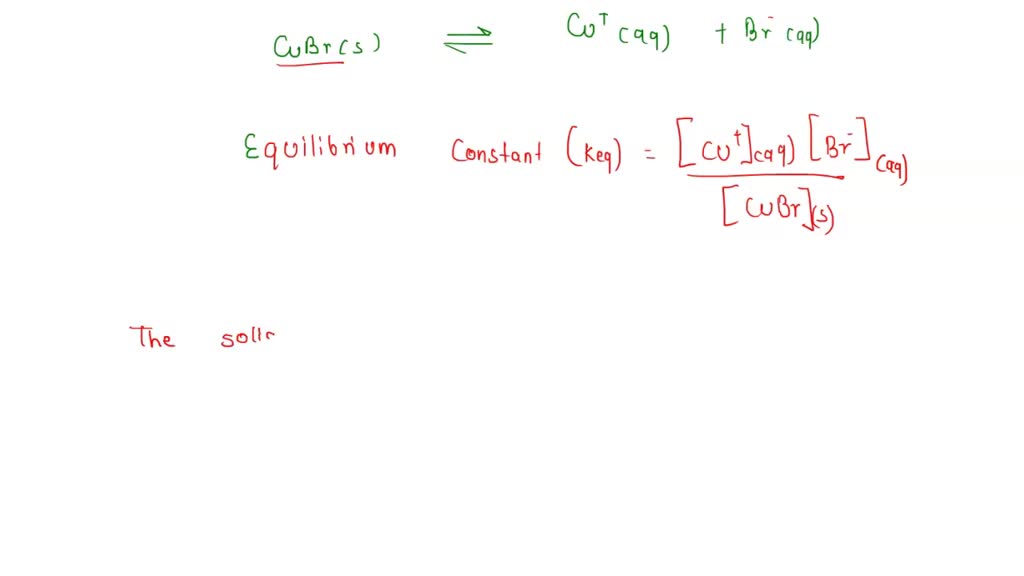 CuBr(s) ⇌ Cu⁺(aq) + Br⁻(aq)
Equilibrium Constant (Keq) = [Cu⁺](aq) [Br⁻](aq)
[CuBr](s)
The